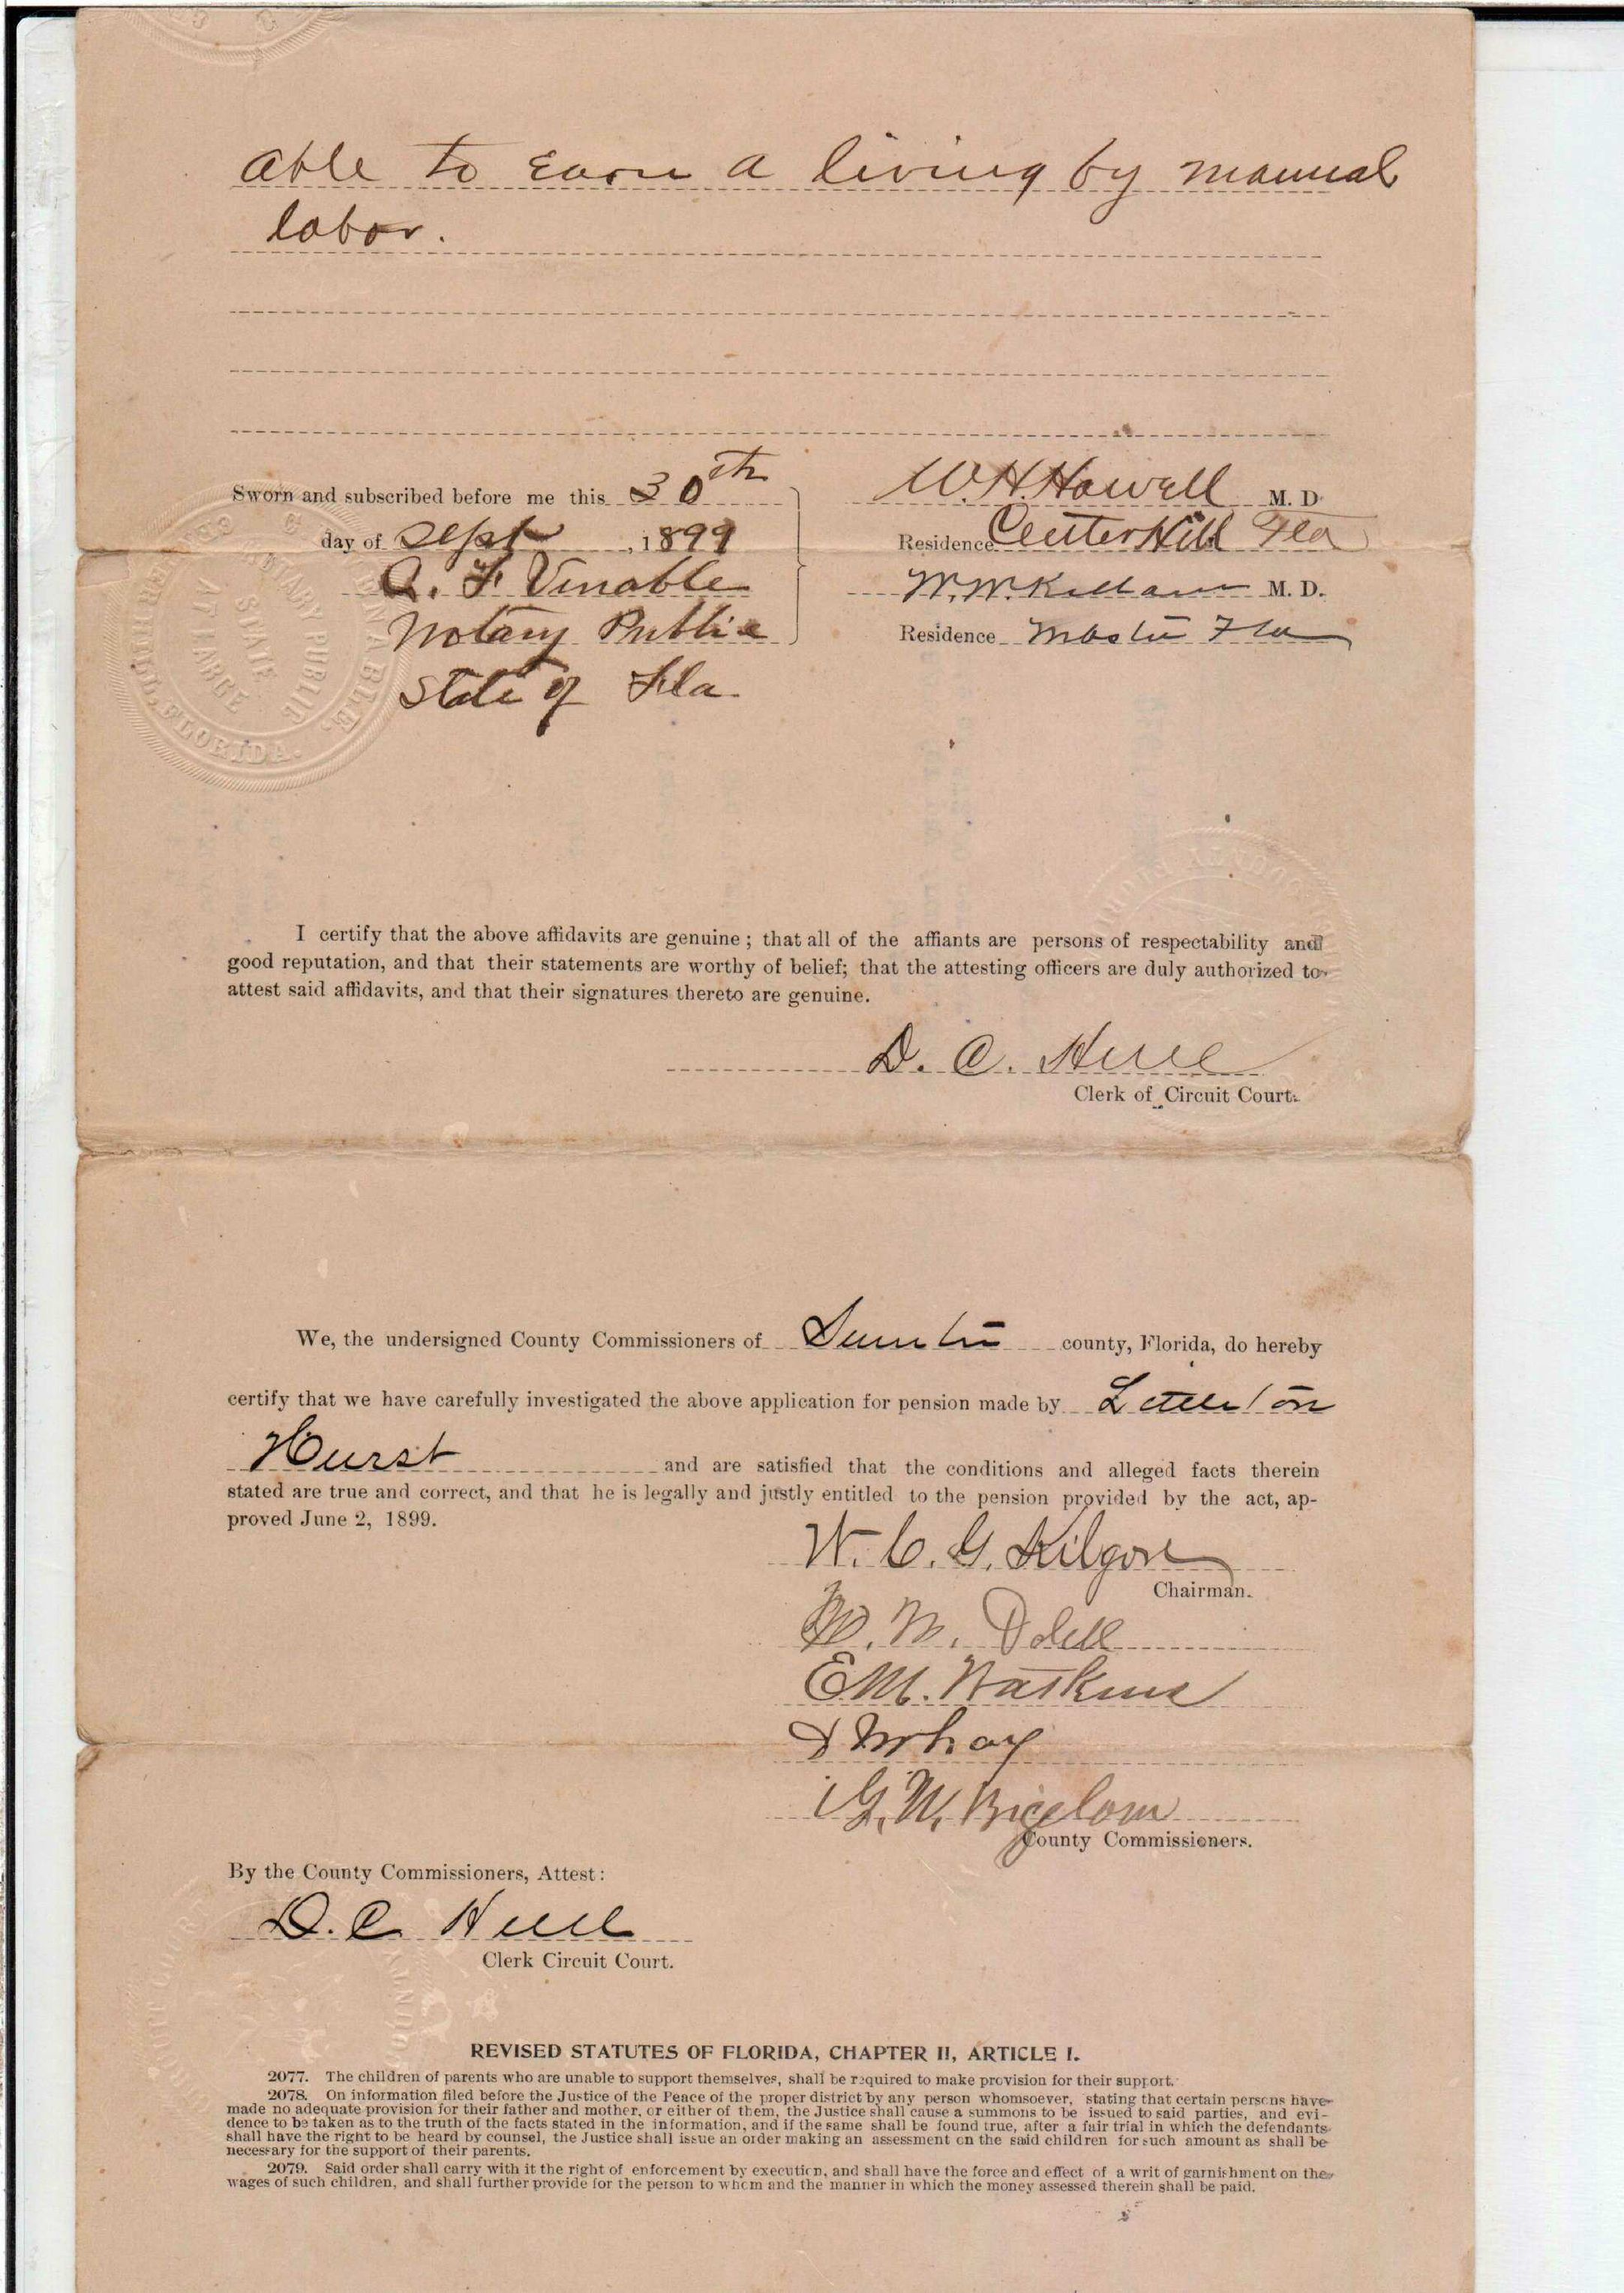 able to earn a living by manual
labor.
Sworn and subscribed before me this 30th
day of Sept, 1899
A. F. Vinable
Notary Public
State of Fla.
W. H. Howell M. D.
Residence Center Hill Fla
W. W. M. D.
Residence Webster Fla
NOTARY PUBLIC
STATE
AT LARGE
FLORIDA.
I certify that the above affidavits are genuine; that all of the affiants are persons of respectability and
good reputation, and that their statements are worthy of belief; that the attesting officers are duly authorized to
attest said affidavits, and that their signatures thereto are genuine.
D. C. Hull
Clerk of Circuit Court.
We, the undersigned County Commissioners of Sumter county, Florida, do hereby
certify that we have carefully investigated the above application for pension made by Littleton
Hurst and are satisfied that the conditions and alleged facts therein
stated are true and correct, and that he is legally and justly entitled to the pension provided by the act, ap-
proved June 2, 1899.
W. C. G. Kilgore
Chairman.
M. Odell
E M. Watkins
G. W. Bigelow
County Commissioners.
By the County Commissioners, Attest:
D. C Hull
Clerk Circuit Court.
REVISED STATUTES OF FLORIDA, CHAPTER II, ARTICLE I.
2077. The children of parents who are unable to support themselves, shall be required to make provision for their support.
2078. On information filed before the Justice of the Peace of the proper district by any person whomsoever, stating that certain persons have
made no adequate provision for their father and mother, or either of them, the Justice shall cause a summons to be issued to said parties, and evi-
dence to be taken as to the truth of the facts stated in the information, and if the same shall be found true, after a fair trial in which the defendants
shall have the right to be heard by counsel, the Justice shall issue an order making an assessment on the said children for such amount as shall be
necessary for the support of their parents.
2079. Said order shall carry with it the right of enforcement by execution, and shall have the force and effect of a writ of garnishment on the
wages of such children, and shall further provide for the person to whom and the manner in which the money assessed therein shall be paid.